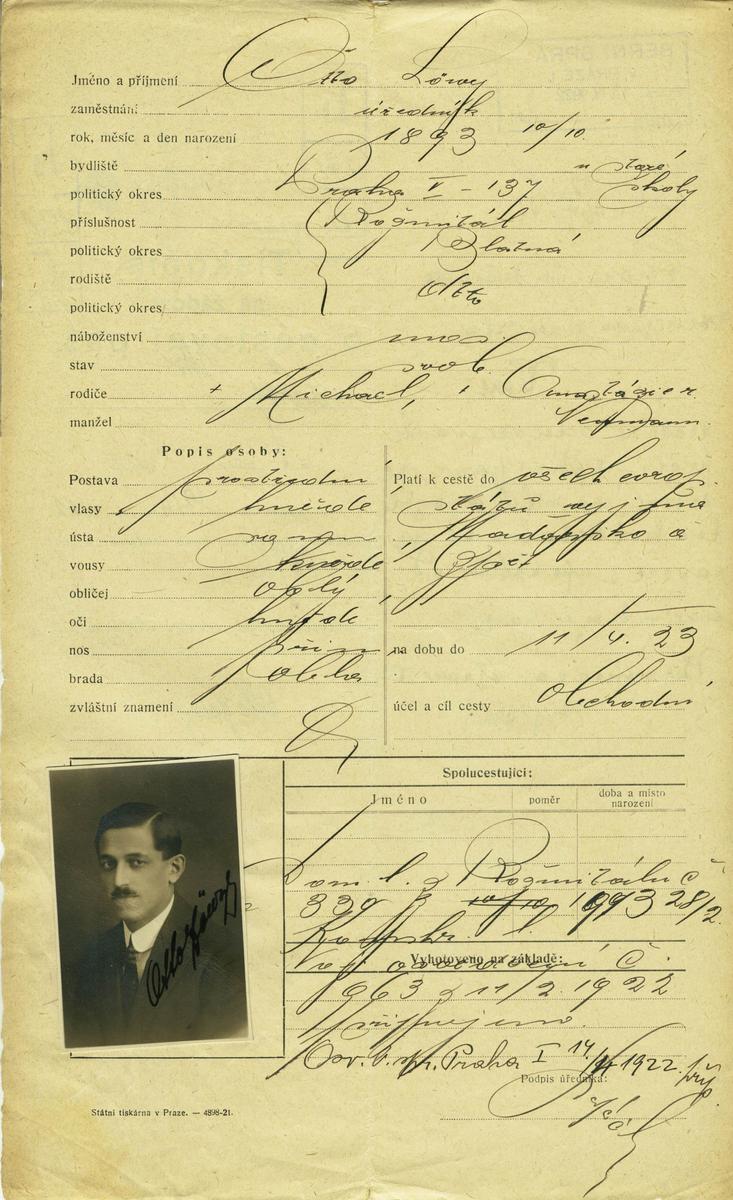 Jméno a příjmení Otto Löwy
zaměstnání úředník
rok, měsíc a den narození 1893 10/10.
bydliště u staré
politický okres Praha V - 137 školy
příslušnost Rožmitál
politický okres Blatná
rodiště dtto
politický okres
náboženství mos.
stav svob.
rodiče + Michael,
manžel
Popis osoby:
Postava prostřední
vlasy hnědé
ústa
vousy hnědé
obličej oblý
oči hnědé
nos
brada oblá
zvláštní znamení
Platí k cestě do všech evrop.
států vyjma
Maďarsko a
zpět
na dobu do 11/4. 23
účel a cíl cesty obchodní
Spolucestující:
Jméno poměr doba a místo narození
Dom. l. z Rožmitálu č
339 10/10 1893 28/2.
Vyhotoveno na základě:
č.
963 z 11/2. 1922
Praha I 14/4 1922.
Podpis úředníka:
Otto Löwy
Státní tiskárna v Praze. — 4898-21.